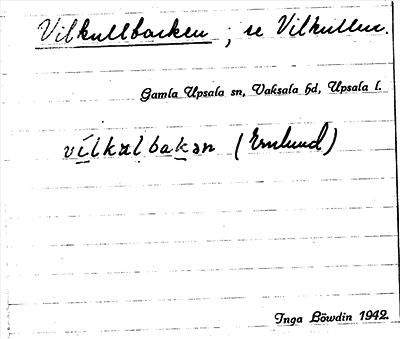 Vilkullbacken ; se Vilkullen.
Gamla Upsala sn, Vaksala hd, Upsala l.
vilkulbakən (Ernlund)
Inga Löwdin 1942.